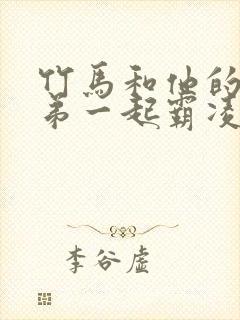 竹马和他的
弟一起霸凌
李谷虚